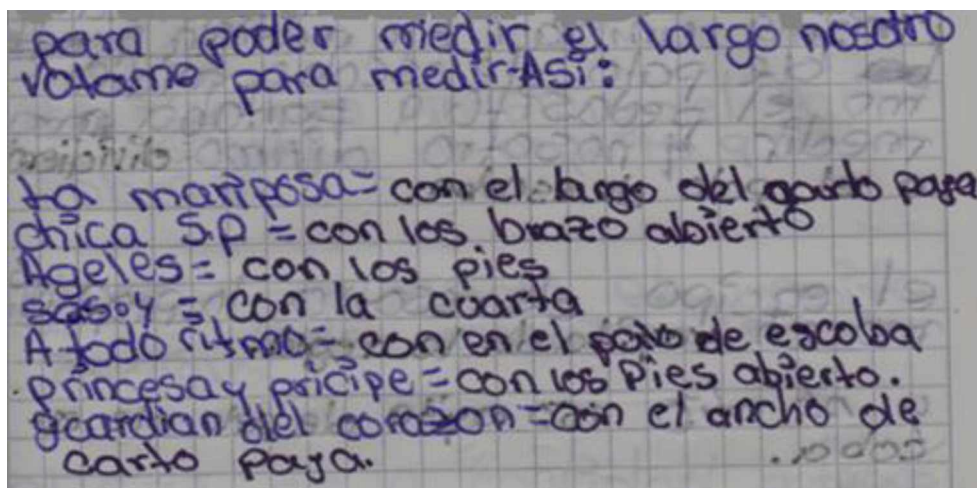 para poder medir el largo nosotro
votame para medir-Asi:
La mariposa= con el largo del garto paja
chica S.P = con los brazo abierto
Ageles= con los pies
sasoy = con la cuarta
A todo ritmo= con en el palo de escoba
princesa y pricipe = con los Pies abierto.
guardian del corazon=con el ancho de
carto paja.